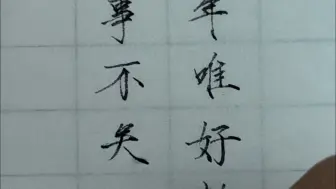 年唯好
事不关